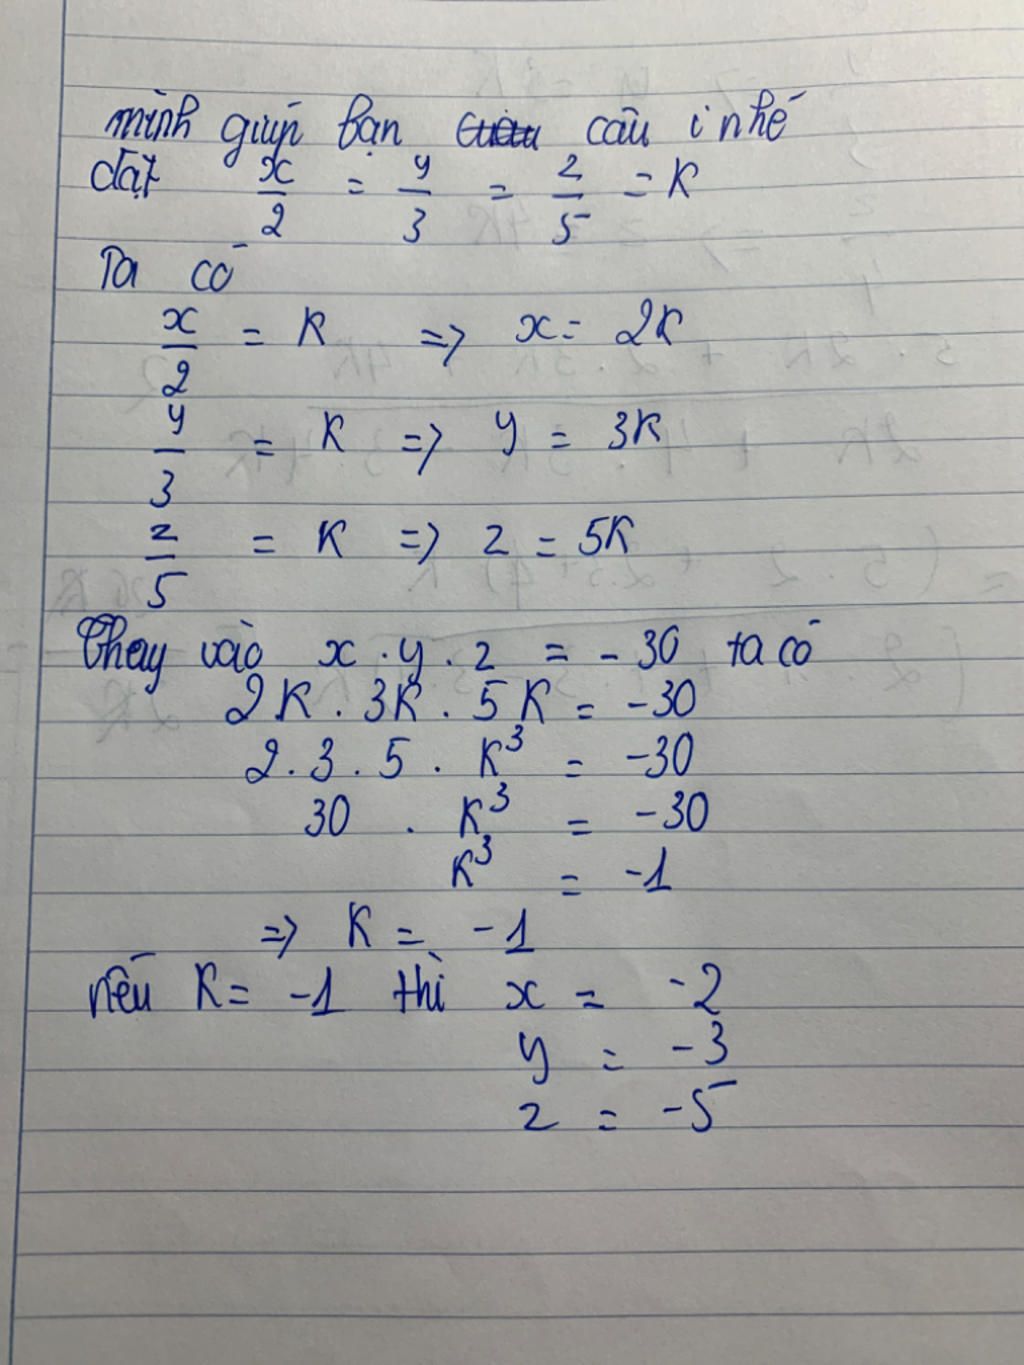 mình giúp bạn câu i nhé
đặt x/2 = y/3 = z/5 = K
Ta có
x/2 = K => x = 2K
y/3 = K => y = 3K
z/5 = K => z = 5K
Thay vào x . y . z = - 30 ta có
2K . 3K . 5K = -30
2 . 3 . 5 . K³ = -30
30 . K³ = -30
K³ = -1
=> K = -1
nếu K = -1 thì x = -2
y = -3
z = -5